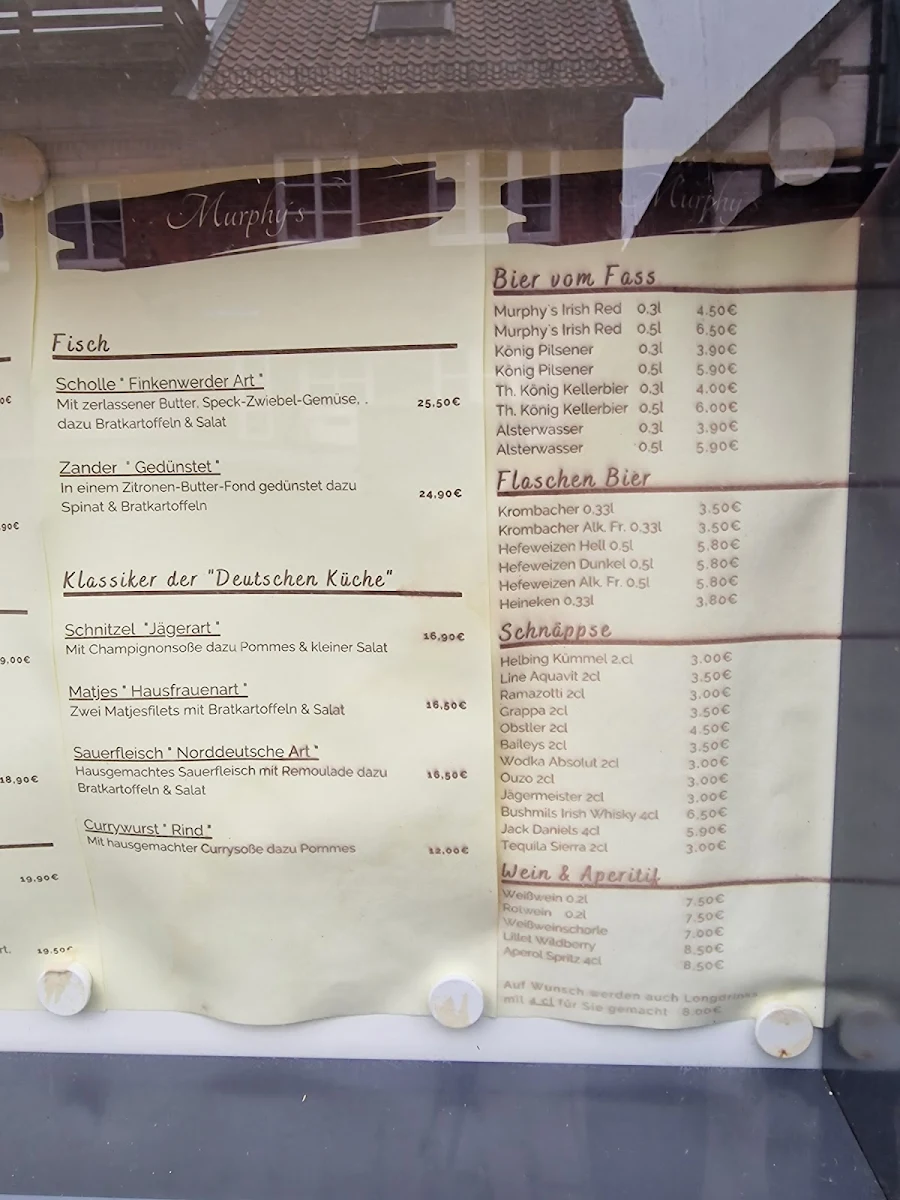 0€
90€
9,00€
18,90€
19,90€
rt. 19.50€
Murphy's
Fisch
Scholle " Finkenwerder Art "
Mit zerlassener Butter, Speck-Zwiebel-Gemüse, .
dazu Bratkartoffeln & Salat
25,50€
Zander " Gedünstet "
In einem Zitronen-Butter-Fond gedünstet dazu
Spinat & Bratkartoffeln
24,90€
Klassiker der "Deutschen Küche"
Schnitzel "Jägerart "
Mit Champignonsoße dazu Pommes & kleiner Salat
16,90€
Matjes " Hausfrauenart "
Zwei Matjesfilets mit Bratkartoffeln & Salat
16,50€
Sauerfleisch " Norddeutsche Art "
Hausgemachtes Sauerfleisch mit Remoulade dazu
Bratkartoffeln & Salat
16,50€
Currywurst " Rind "
Mit hausgemachter Currysoße dazu Pommes
12,00€
Murphy's
Bier vom Fass
Murphy's Irish Red 0,3l 4.50€
Murphy's Irish Red 0,5l 6.50€
König Pilsener 0,3l 3.90€
König Pilsener 0,5l 5.90€
Th. König Kellerbier 0,3l 4.00€
Th. König Kellerbier 0,5l 6.00€
Alsterwasser 0,3l 3.90€
Alsterwasser 0,5l 5.90€
Flaschen Bier
Krombacher 0,33l 3.50€
Krombacher Alk. Fr. 0,33l 3.50€
Hefeweizen Hell 0,5l 5.80€
Hefeweizen Dunkel 0,5l 5.80€
Hefeweizen Alk. Fr. 0,5l 5.80€
Heineken 0,33l 3.80€
Schnäppse
Helbing Kümmel 2.cl 3.00€
Line Aquavit 2cl 3.50€
Ramazotti 2cl 3.00€
Grappa 2cl 3.50€
Obstler 2cl 4.50€
Baileys 2cl 3.50€
Wodka Absolut 2cl 3.00€
Ouzo 2cl 3.00€
Jägermeister 2cl 3.00€
Bushmils Irish Whisky 4cl 6.50€
Jack Daniels 4cl 5.90€
Tequila Sierra 2cl 3.00€
Wein & Aperitif
Weißwein 0.2l 7.50€
Rotwein 0.2l 7.50€
Weißweinschorle 7.00€
Lillet Wildberry 8.50€
Aperol Spritz 4cl 8.50€
Auf Wunsch werden auch Longdrinks
mit 4.cl für Sie gemacht 8.00€